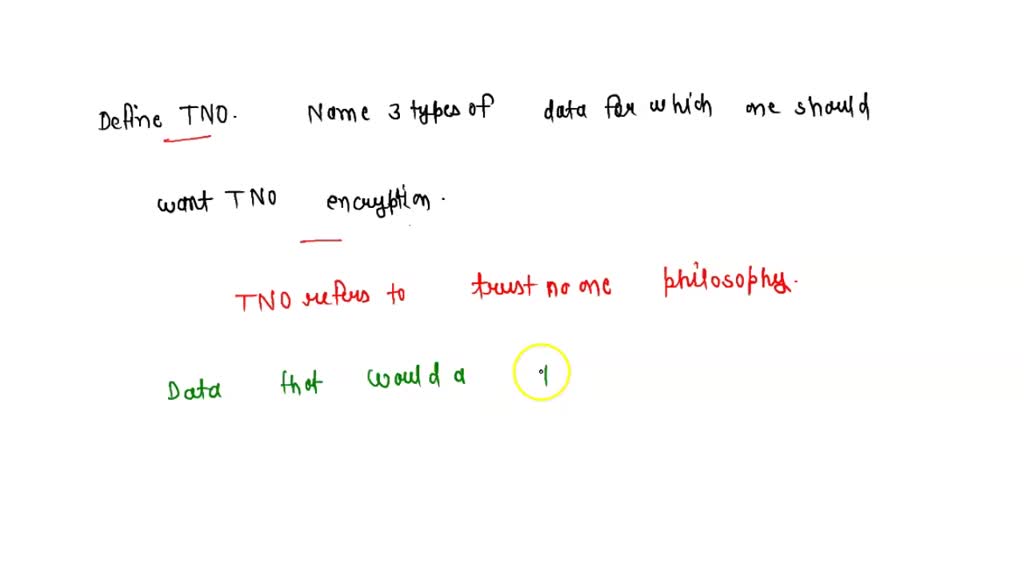 Define TNO. Name 3 types of data for which one should
want TNO encryption.
TNO refers to trust no one philosophy.
Data that would a